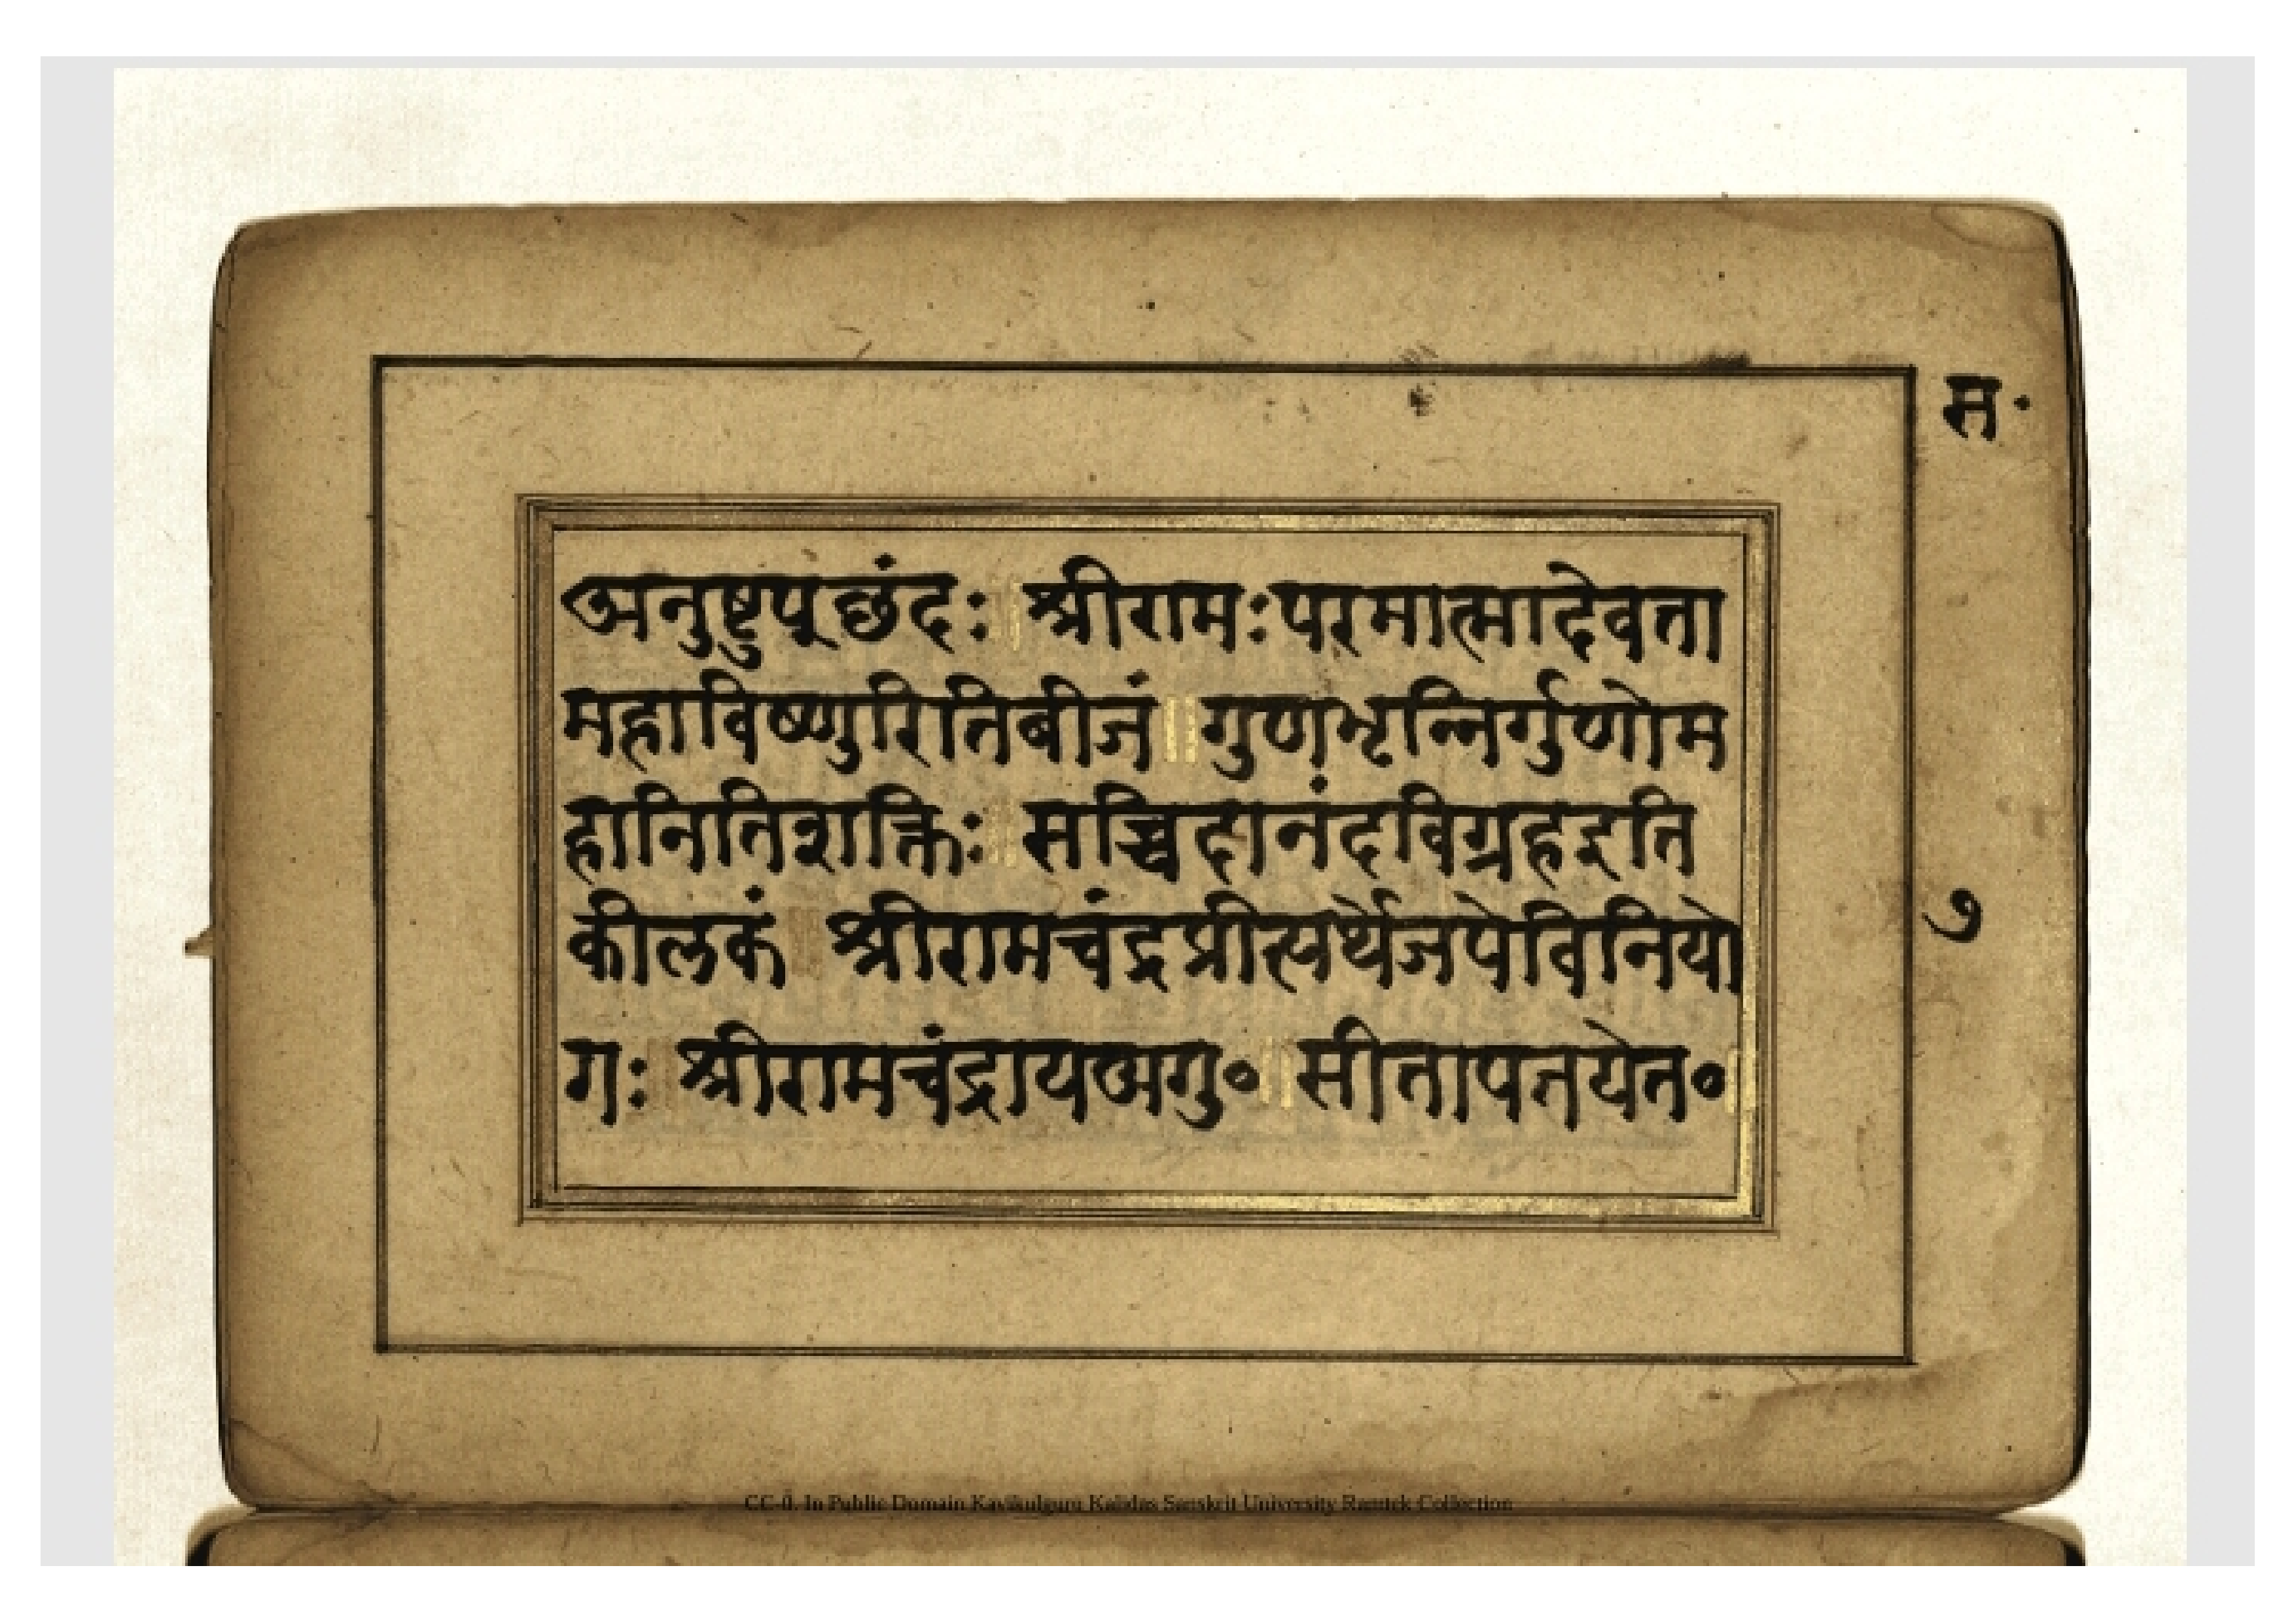 स॰
अनुष्टुप्छंदः ॥ श्रीरामःपरमात्मादेवता
महाविष्णुरितिबीजं ॥ गुणभृन्निर्गुणोम
हानितिशक्तिः ॥ सच्चिदानंदविग्रहइति
कीलकं ॥ श्रीरामचंद्रप्रीत्यर्थेजपेविनियो
७
गः ॥ श्रीरामचंद्रायअगु॰ ॥ सीतापतयेत॰ ॥
CC-0. In Public Domain Kavikulguru Kalidas Sanskrit University Ramtek Collection